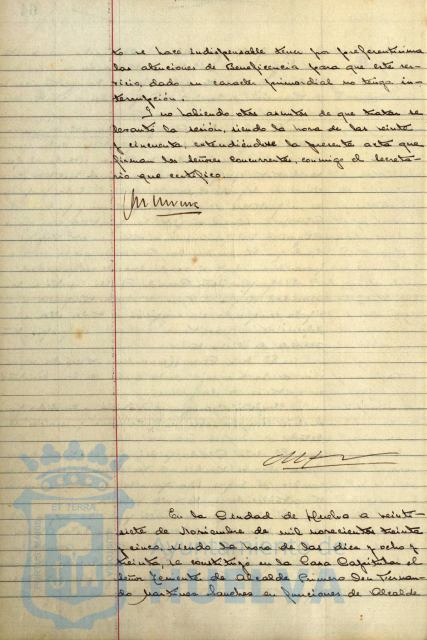 to se hace indispensable tener por preferentisima
las atenciones de Beneficencia para que este ser-
vicio, dado su caracter primordial no tenga in-
terrupción.
Y no habiendo otros asuntos de que tratar se
levantó la sesión, siendo la hora de las veinte
y cincuenta, extendiéndose la presente acta que
firman los Señores concurrentes, conmigo el Secreta-
rio que certifico.
En la Ciudad de Huelva a veinte-
siete de Noviembre de mil novecientos treinta
y cinco, siendo la hora de las diez y ocho y
treinta, se constituyó en la Casa Capitular el
Señor Teniente de Alcalde Primero Don Fernan-
do Martinez Sanchez en funciones de Alcalde
ET TERRA
HUELVA